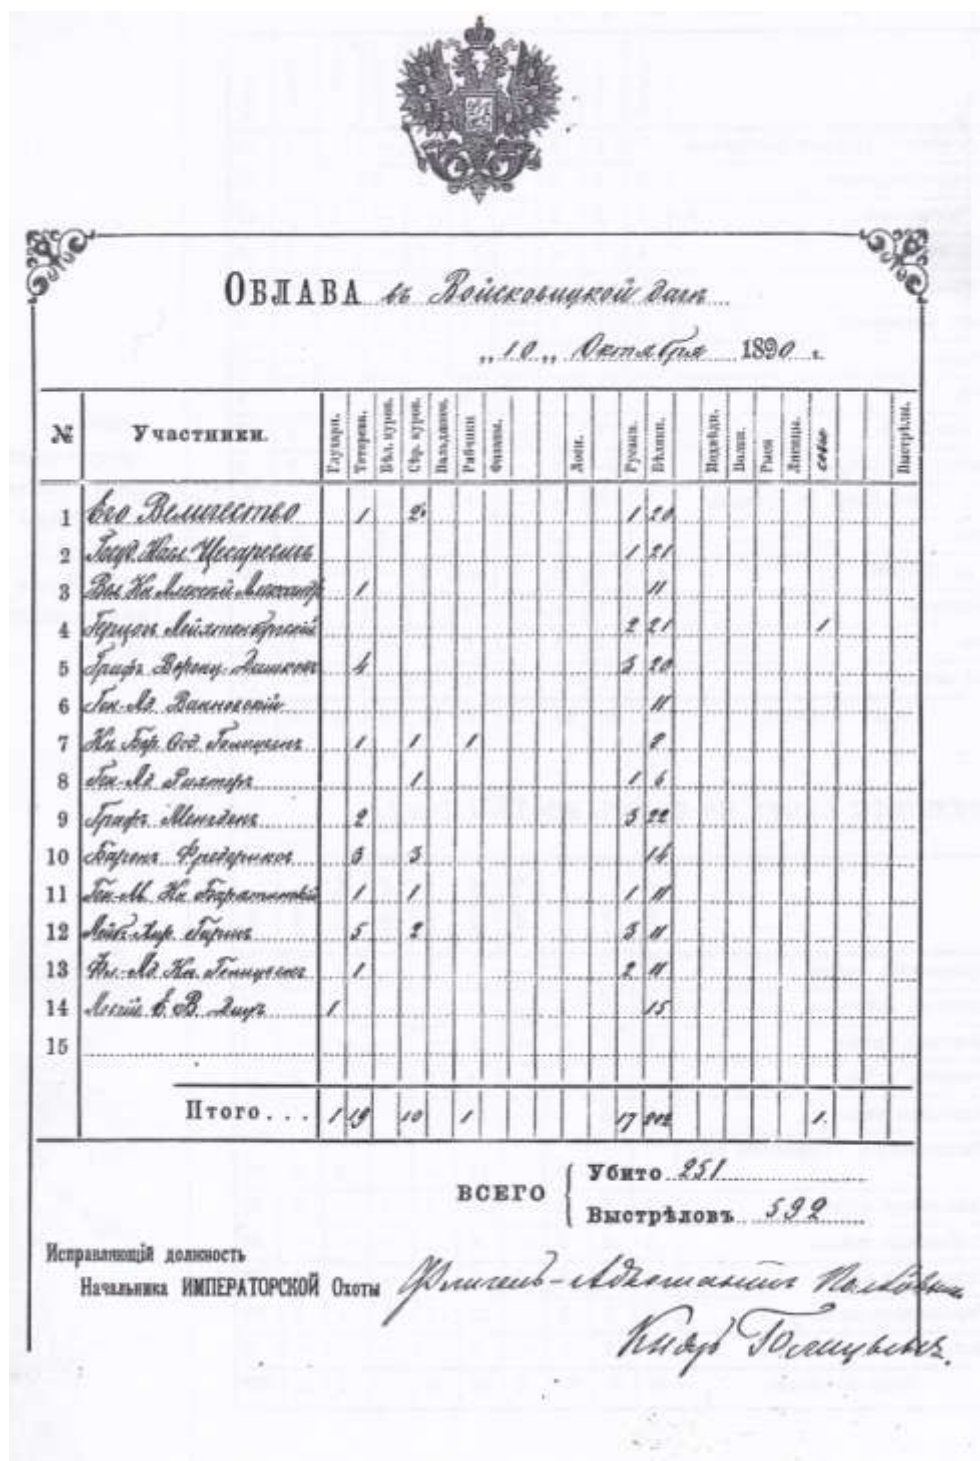 ОБЛАВА въ Войсковицкой дачѣ
„10„ Октября 1890 г.
№ Участники. Глухари. Тетерева. Бѣл. куроп. Сѣр. куроп. Вальдшнеп. Рябчики Фазаны. Лоси. Русаки. Бѣляки. Медвѣди. Волки. Рыси Лисицы. совы Выстрѣлы.
1 Его Величество 1 2 1 20
2 Госуд. Насл. Цесаревичъ 1 21
3 Вел. Кн. Алексѣй Александр. 1 11
4 Герцогъ Лейхтенбергскій 2 21 1
5 Графъ Воронц. Дашковъ 4 3 20
6 Ген.-Ад. Ванновский 11
7 Кн. Бор. Ѳед. Голицынъ 1 1 1 8
8 Ген.-Ад. Рихтеръ 1 1 6
9 Графъ Менгденъ 2 3 22
10 Баронъ Фредериксъ 3 3 14
11 Ген.-М. Кн. Барятинскій 1 1 1 11
12 Лейб-Хир. Гиршъ 5 2 3 11
13 Фл.-Ад. Кн. Голицынъ 1 2 11
14 Е. В. Дицъ 1 15
15
Итого... 1 19 10 1 17 202 1.
ВСЕГО
Убито 251
Выстрѣловъ 592
Исправляющій должность
Начальника ИМПЕРАТОРСКОЙ Охоты Флигель-Адъютантъ Полковник
Князь Голицынъ.